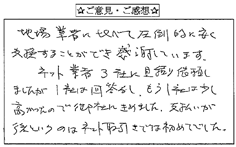 ☆ご意見・ご感想☆
地場業者に比べて圧倒的に安く
することができ感謝しています。
ネット業者3社に見積依頼
しましたが1社は回答なし、もう1社は少し
高かったので御社にきめました。支払いが
後というのはネット取引きでは初めてでした。